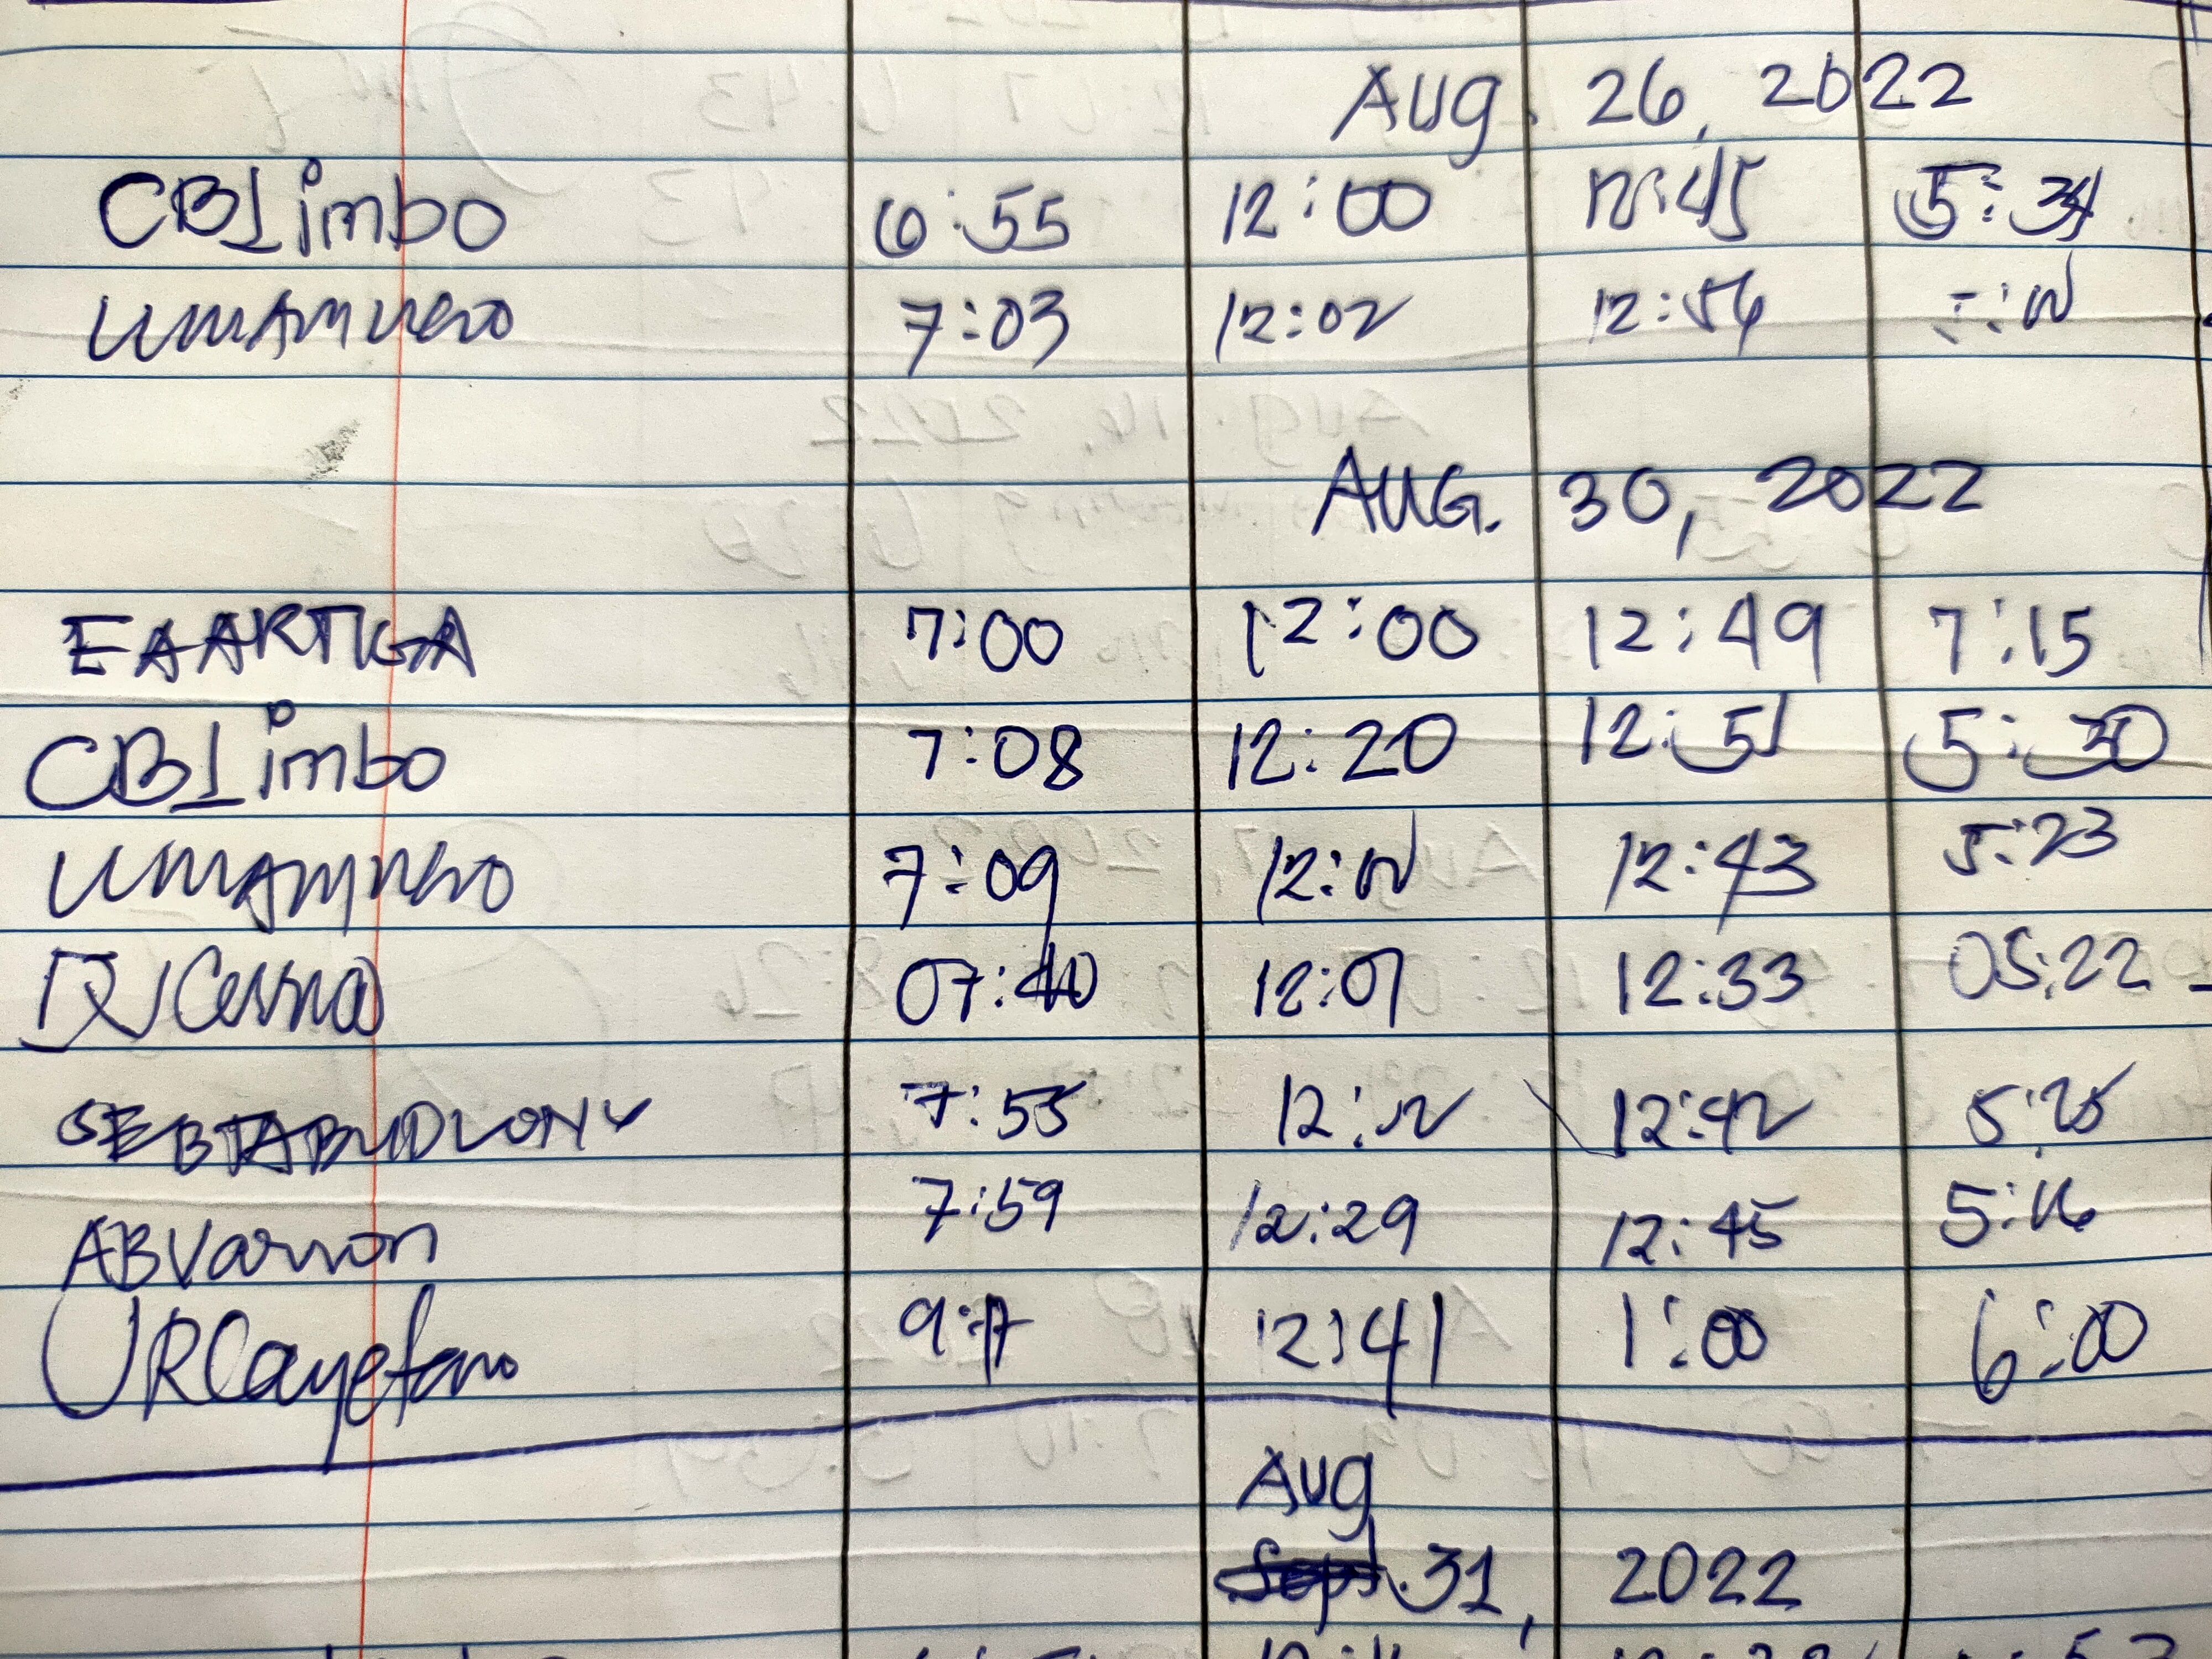 Aug. 26, 2022
CBLimbo 6:55 12:00 12:45 5:34
7:03 12:02 12:56
AUG. 30, 2022
EAARTIGA 7:00 12:00 12:49 7:15
CBLimbo 7:08 12:20 12:51 5:30
7:09 12:43 5:23
07:40 12:01 12:33 05:22
7:55 12:42 5:25
ABVarron 7:59 12:29 12:45 5:16
URCayetano 9:17 12:41 1:00 6:00
Aug
Sept. 31, 2022